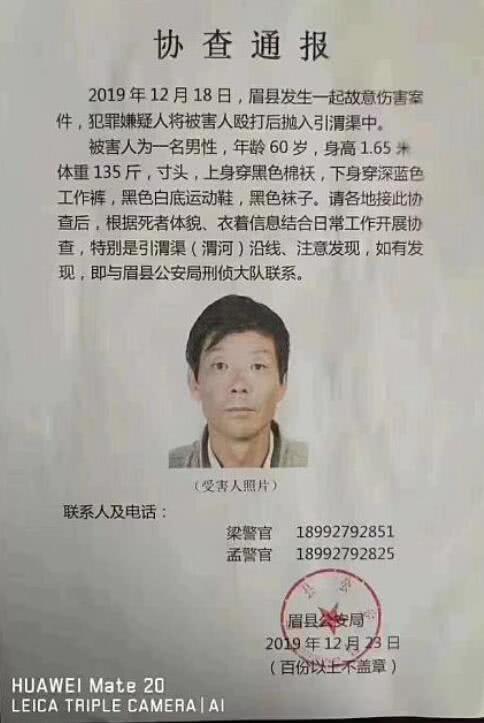 协查通报
2019 年 12 月 18 日，眉县发生一起故意伤害案
件，犯罪嫌疑人将被害人殴打后抛入引渭渠中。
被害人为一名男性，年龄 60 岁，身高 1.65 米
体重 135 斤，寸头，上身穿黑色棉袄，下身穿深蓝色
工作裤，黑色白底运动鞋，黑色袜子。请各地接此协
查后，根据死者体貌、衣着信息结合日常工作开展协
查，特别是引渭渠（渭河）沿线、注意发现，如有发
现，即与眉县公安局刑侦大队联系。
（受害人照片）
联系人及电话：
梁警官 18992792851
孟警官 18992792825
眉县公安局
2019 年 12 月 23 日
（百份以上不盖章）
HUAWEI Mate 20
LEICA TRIPLE CAMERA | AI